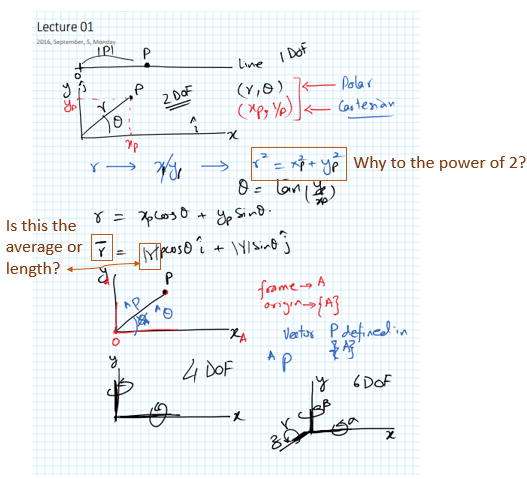 Lecture 01
2016, September, 5, Monday
|P| P
line 1 DoF
y ĵ
yp r P 2 DoF (r, θ) ← Polar
θ (xp, yp) ← Cartesian
î x
xp
r → x/yp → r² = xp² + yp² Why to the power of 2?
θ = tan(yp/xp)
r = xp cosθ + yp sinθ.
Is this the
average or
length?
r̄ = |r| cosθ î + |r| sinθ ĵ
yA P
frame → A
origin → {A}
ᴬP ᴬθ
O xA
Vector P defined in
{A}
ᴬP
y 4 DoF x
y 6 DoF
β
γ α
z x